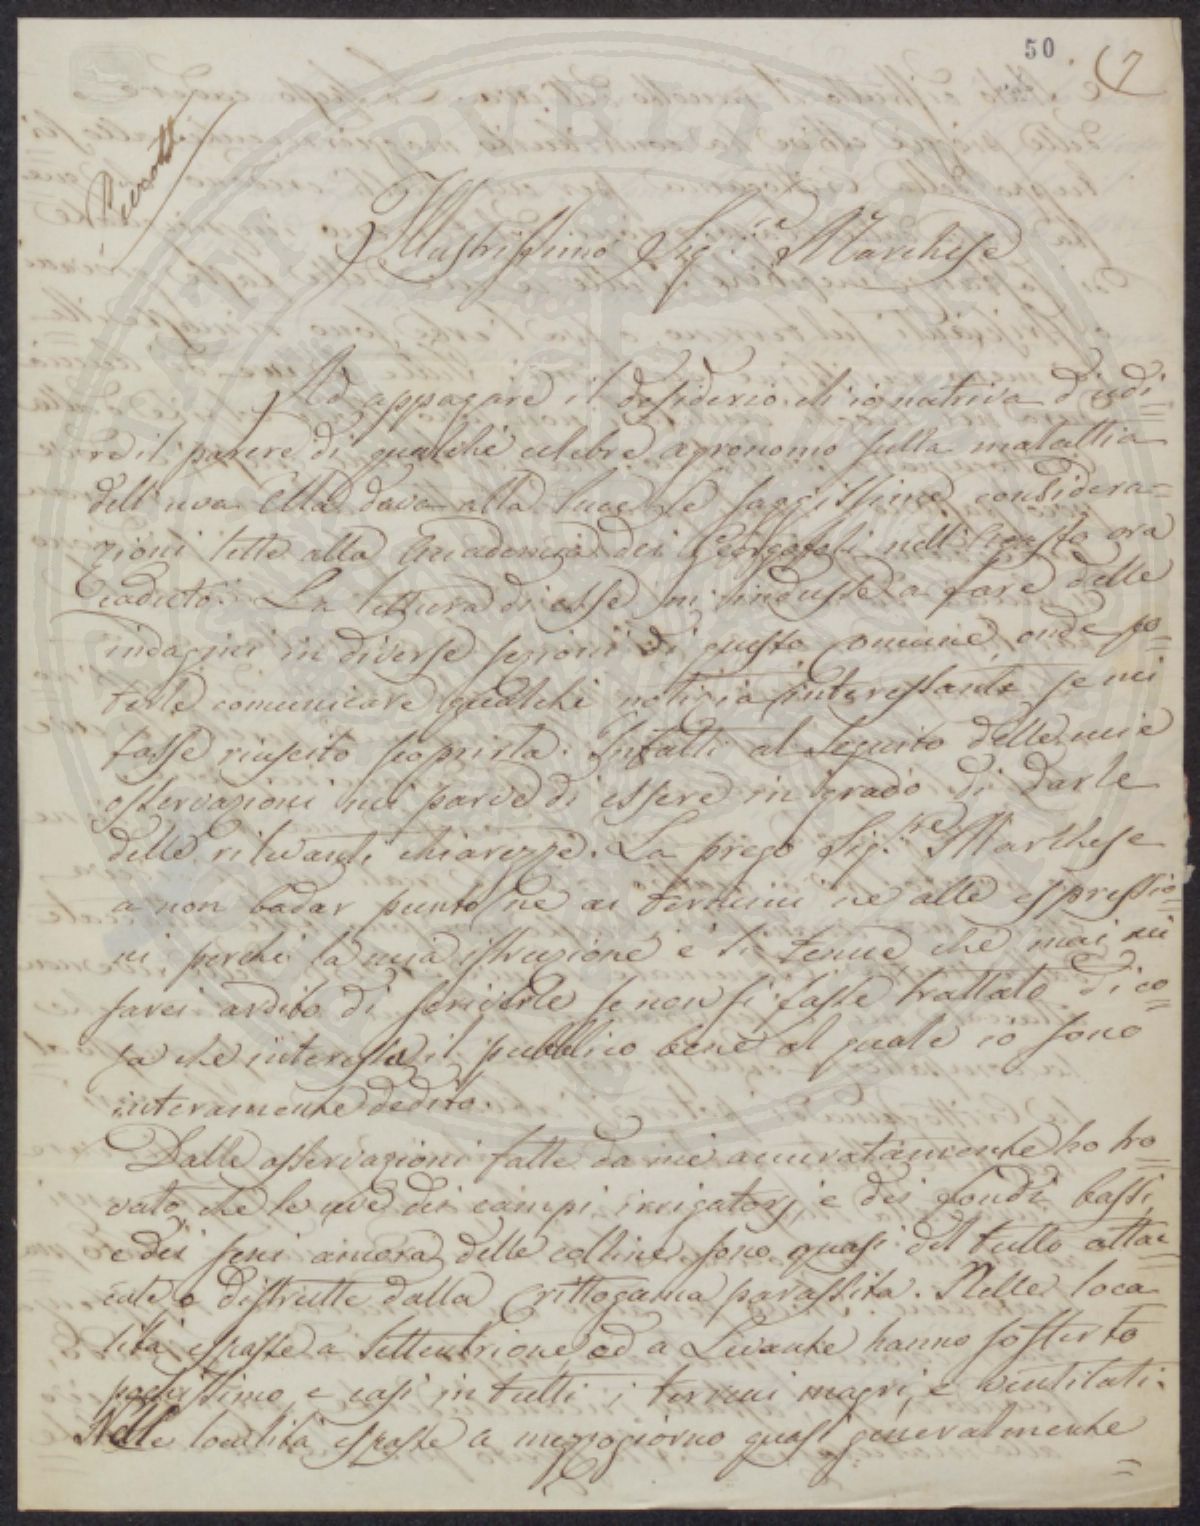 50
Illustrissimo Sig.re Marchese
Ad appagare il desiderio che io nutriva d'udi=
re il parere di qualche celebre agronomo sulla malattia
dell'uva Ella dava alla luce le saggissime considera=
zioni lette alla Accademia dei Georgofili nell'Agosto ora
caduto. La lettura di esse m'indusse a fare delle
indagini in diverse sezioni di questo Comune, onde po=
terle comunicare qualche notizia interessante se mi
fosse riuscito scoprirla. Infatti al seguito delle mie
osservazioni mi parve di essere in grado di darle
delle rilevanti chiarezze. La prego Sig.re Marchese
a non badar punto nè ai termini nè alle espressio=
ni perchè la mia istruzione è sì tenue che mai mi
sarei ardito di scriverle se non si fosse trattato di co=
sa che interessa il pubblico bene al quale io sono
interamente dedito.
Dalle osservazioni fatte da me accuratamente ho tro=
vato che le uve dei campi irrigatorj, e dei fondi bassi,
e dei seni ancora delle colline sono quasi del tutto attac=
cate e distrutte dalla Crittogama parassita. Nelle loca=
lità esposte a Settentrione ed a Levante hanno sofferto
pochissimo, e così in tutti i terreni magri, e ventilati.
Nelle località esposte a mezzogiorno quasi generalmente
=